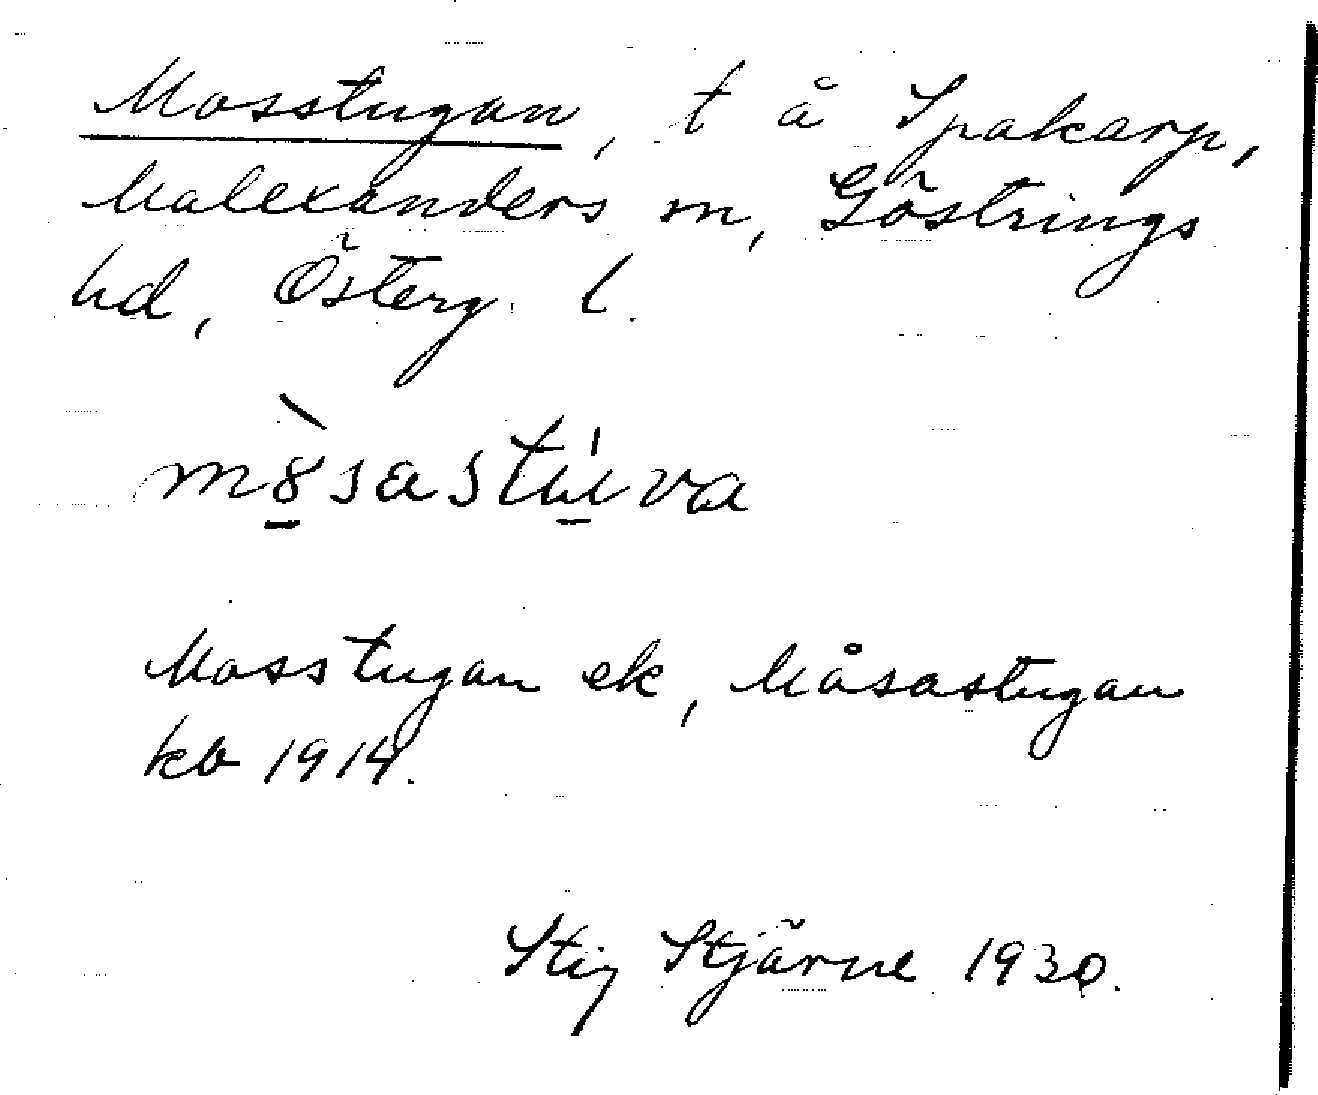 Mosstugan, t å Spakarp,
Malexanders sn, Göstrings
hd, Österg. l.
mȣ̀sastúva
Mosstugan ek, Måsastugan
kb 1914.
Stig Stjärne 1930.